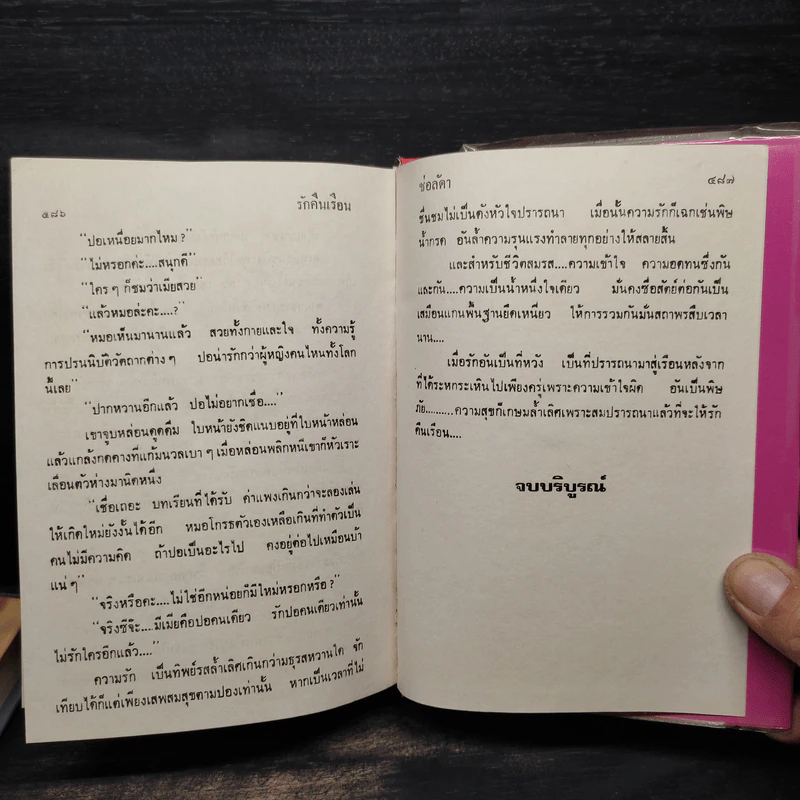 ๕๘๖
รักคืนเรือน
“ปอเหนื่อยมากไหม ?”
“ไม่หรอกค่ะ....สนุกดี”
“ใคร ๆ ก็ชมว่าเมียสวย”
“แล้วหมอล่ะคะ....?”
“หมอเห็นมานานแล้ว สวยทั้งกายและใจ ทั้งความรู้
การปรนนิบัติวัตถากต่าง ๆ ปอน่ารักกว่าผู้หญิงคนไหนทั้งโลก
นี้เลย”
“ปากหวานอีกแล้ว ปอไม่อยากเชื่อ....”
เขาจูบหล่อนดูดดื่ม ใบหน้ายังชิดแนบอยู่ที่ใบหน้าหล่อน
แล้วแกล้งกดคางที่แก้มนวลเบา ๆ เมื่อหล่อนพลิกหนีเขาก็หัวเราะ
เลื่อนตัวห่างมานิดหนึ่ง
“เชื่อเถอะ บทเรียนที่ได้รับ ค่าแพงเกินกว่าจะลองเล่น
ให้เกิดใหม่ยังงั้นได้อีก หมอโกรธตัวเองเหลือเกินที่ทำตัวเป็น
คนไม่มีความคิด ถ้าปอเป็นอะไรไป คงอยู่ต่อไปเหมือนบ้า
แน่ ๆ”
“จริงหรือคะ....ไม่ใช่อีกหน่อยก็มีใหม่หรอกหรือ ?”
“จริงซีจ๊ะ....มีเมียคือปอคนเดียว รักปอคนเดียวเท่านั้น
ไม่รักใครอีกแล้ว....”
ความรัก เป็นทิพย์รสล้ำเลิศเกินกว่ามธุรสหวานใด จัก
เทียบได้ก็แต่เพียงเสพสมสุขตามปองเท่านั้น หากเป็นเวลาที่ไม่
ช่อลัดา
๕๘๗
ชื่นชมไม่เป็นดังหัวใจปรารถนา เมื่อนั้นความรักก็เฉกเช่นพิษ
น้ำกรด อันล้ำความรุนแรงทำลายทุกอย่างให้สลายสิ้น
และสำหรับชีวิตสมรส....ความเข้าใจ ความอดทนซึ่งกัน
และกัน....ความเป็นน้ำหนึ่งใจเดียว มั่นคงซื่อสัตย์ต่อกันเป็น
เสมือนแกนพื้นฐานยึดเหนี่ยว ให้การรวมกันมั่นสถาพรสืบเวลา
นาน....
เมื่อรักอันเป็นที่หวัง เป็นที่ปรารถนามาสู่เรือนหลังจาก
ที่ได้ระหกระเหินไปเพียงครู่เพราะความเข้าใจผิด อันเป็นพิษ
ภัย..........ความสุขก็เกษมล้ำเลิศเพราะสมปรารถนาแล้วที่จะให้รัก
คืนเรือน....
จบบริบูรณ์